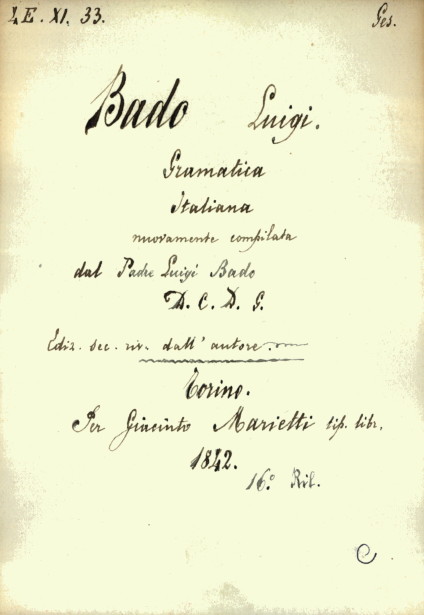 LE. XI. 33. Ges.
Bado Luigi.
Gramatica
Italiana
nuovamente compilata
dal Padre Luigi Bado
D. C. D. G.
Ediz. sec. riv. dall' autore.
Torino.
Per Giacinto Marietti tip. libr.
1842.
16.° Ril.
C